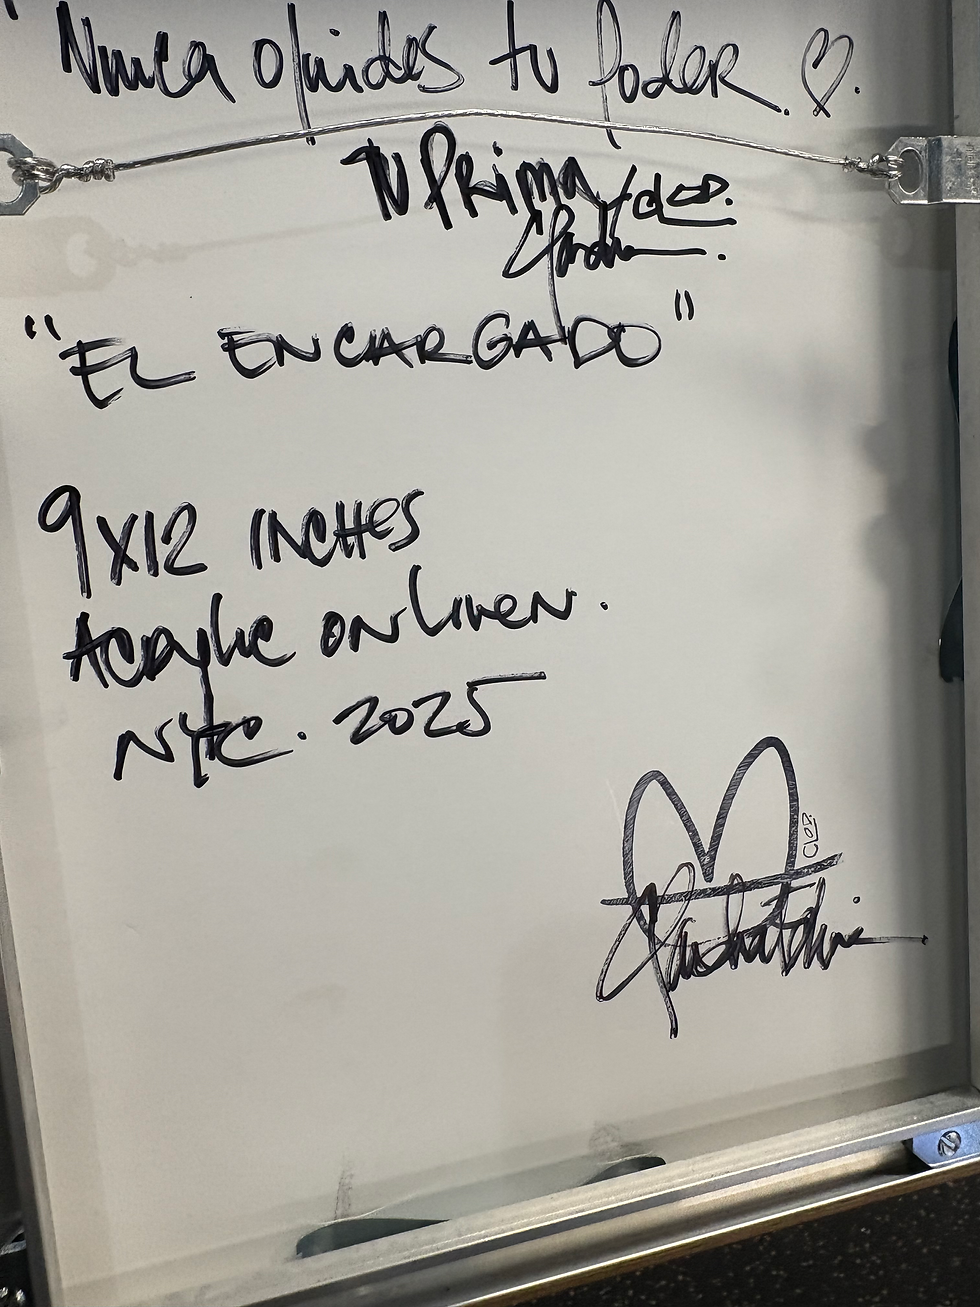 "Nunca olvides tu poder. ♡.
Tu Prima
"EL ENCARGADO"
9X12 INCHES
Acrylic on Linen.
NYC. 2025